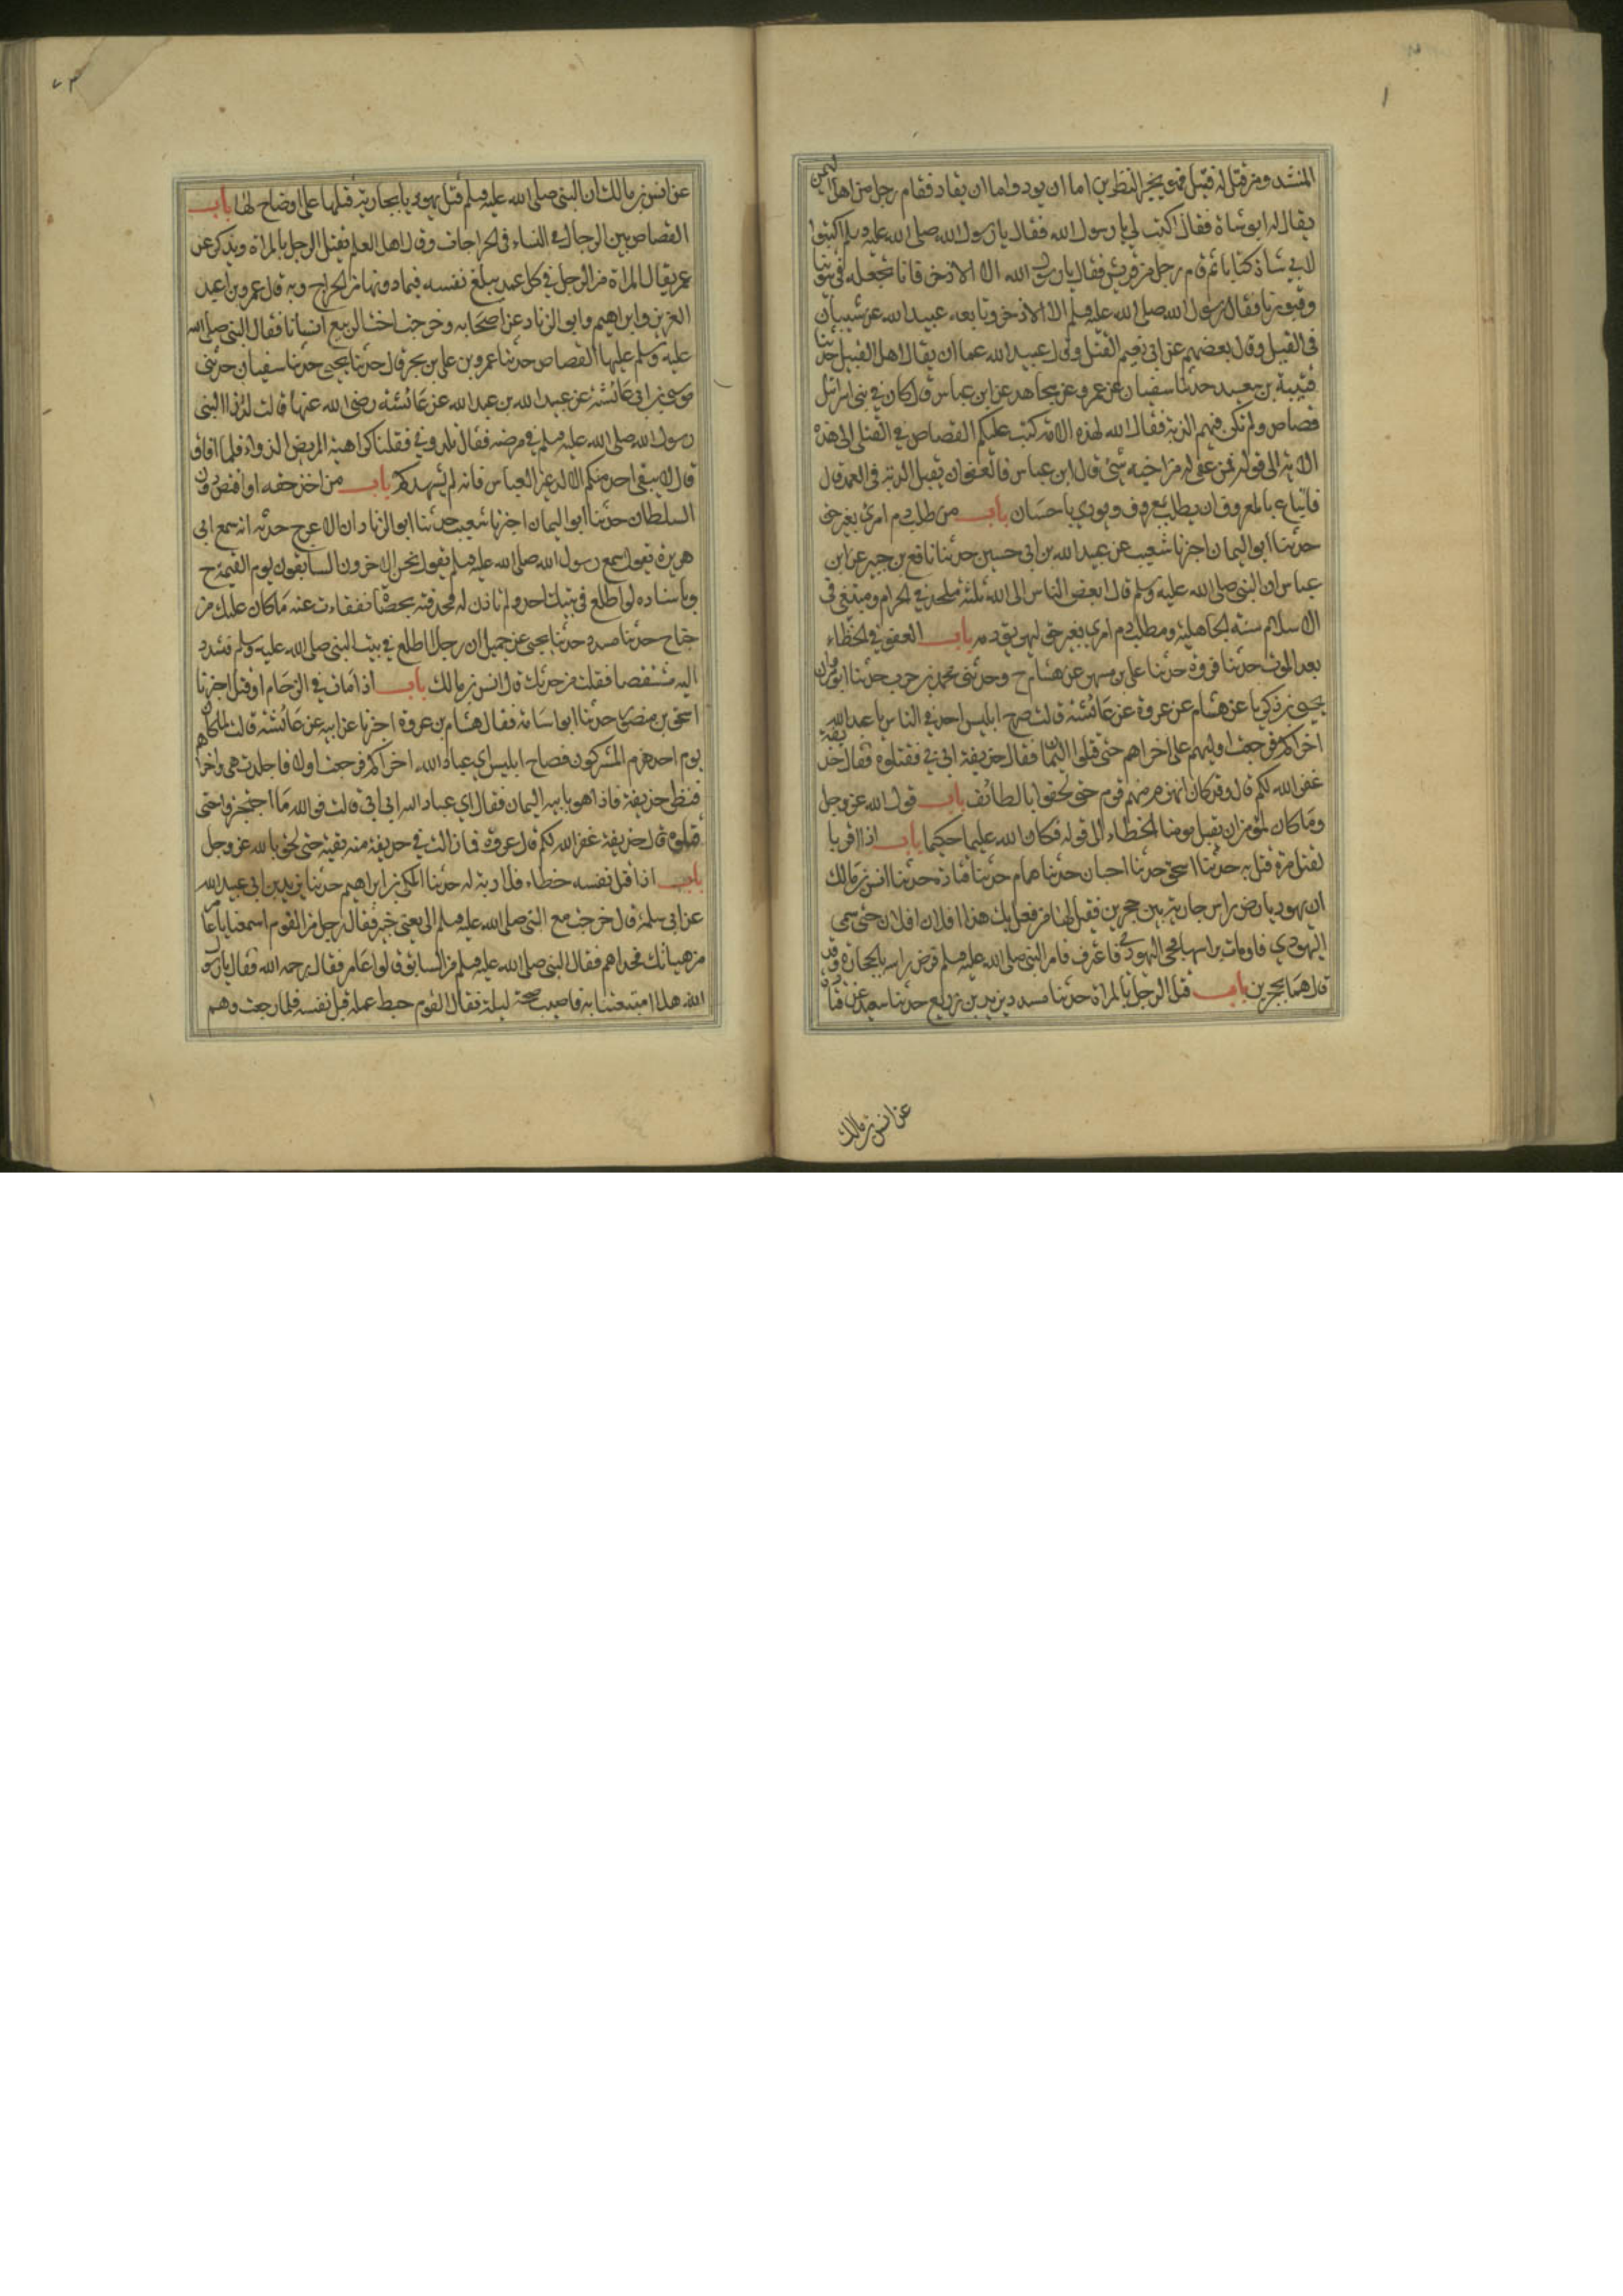 ١
المنشد ومن قتل له قتيل فهو بخير النظرين اما ان يودو اما ان يقاد فقام رجل من اهل اليمن
يقال له ابو شاة فقال اكتب لي يا رسول الله فقال يا رسول الله صلى الله عليه وسلم اكتبوا
لابي شاة كتابا ثم قام رجل من قريش فقال يا رسول الله الا الاذخر فانا نجعله في بيوتنا
وقبورنا فقال رسول الله صلى الله عليه وسلم الا الاذخر وتابعه عبيد الله عن شيبان
في القيل وقال بعضهم عن ابي نعيم القتل وقال عبيد الله عما ان يقال اهل القتيل حدثنا
قتيبة بن سعيد حدثنا سفيان عن عمرو عن مجاهد عن ابن عباس قال كان في بني اسرائيل
قصاص ولم تكن فيهم الدية فقال الله لهذه الامة كتب عليكم القصاص في القتلى الى هذه
الاية الى قوله فمن عفي له من اخيه شئ قال ابن عباس فالعفو ان يقبل الدية في العمد قال
فاتباع بالمعروف ان يطلب بمعروف ويودي باحسان باب من طلب دم امرئ بغير حق
حدثنا ابو اليمان اخبرنا شعيب عن عبيد الله بن ابي حسين حدثنا نافع بن جبير عن ابن
عباس ان النبي صلى الله عليه وسلم قال ابغض الناس الى الله ثلثة ملحد في الحرام ومبتغ في
الاسلام سنه الجاهلية ومطلب دم امري بغير حق ليهريق دمه باب العفو في الخطاء
بعد الموت حدثنا فروة حدثنا علي بن مسهر عن هشام ح وحدثني محمد بن حرب حدثنا ابو مروان
يحيى بن زكريا عن هشام عن عروة عن عائشة قالت صرخ ابليس احد في الناس يا عبد الله
اخراكم فرجعت اوليهم على اخراهم حتى قتلوا اليمان فقال حذيفة ابي ابي فقتلوه فقال حذيفة
غفر الله لكم قال وقد كان انهزم منهم قوم حتى لحقوا بالطائف باب قول الله عز وجل
وما كان لمؤمن ان يقتل مومنا الا خطاء الى قوله فكان الله عليما حكيما باب اذا اقر با
لقتل مرة قتل به حدثنا اسحق حدثنا احبان حدثنا همام حدثنا قتادة حدثنا انس بن مالك
ان يهوديا رض راس جارية بين حجرين فقيل لها من فعل بك هذا افلان افلان حتى سمي
اليهودي فاومات براسها فجي اليهودي فاعترف فامر النبي صلى الله عليه وسلم فرض راسه بالحجارة وقد
قال همام بحجرين باب قتل الرجل بالمراة حدثنا مسدد يزيد بن زريع حدثنا سعيد عن قتادة
عن انس بن مالك
عن انس بن مالك ان النبي صلى الله عليه وسلم قتل يهوديا بجارية قتلها على اوضاح لها باب
القصاص بين الرجال و النساء في الجراحات وقال اهل العلم يقتل الرجل بالمراة ويذكر عن
عمر يقال المراة من الرجل في كل عمد يبلغ نفسه فيما دونها من الجراح وبه قال عمرو بن عبد
العزيز وابراهيم وابو الزناد عن اصحابه وخرجت اخت الربيع انسانا فقال النبي صلى الله
عليه وسلم عليها القصاص حدثنا عمرو بن علي بن بحر قال حدثنا يحيى حدثنا سفيان حدثني
موسى بن ابي عائشة عن عبيد الله بن عبد الله عن عائشة رضي الله عنها قالت لددنا النبي
رسول الله صلى الله عليه وسلم في مرضه فقال تلدوني فقلنا كراهية المريض الدواء فلما افاق
قال لا يبقى احد منكم الا لد غير العباس فانه لم يشهدكم باب من اخذ حقه او اقتص دون
السلطان حدثنا ابو اليمان اخبرنا شعيب حدثنا ابو الزناد ان الاعرج حدثه انه سمع ابي
هريرة يقول سمع رسول الله صلى الله عليه وسلم يقول نحن الاخرون السابقون يوم القيمة ح
وباسناده لو اطلع في بيتك احد ولم تاذن له فحذفته بحصاة ففقات عنه ما كان عليك من
جناح حدثنا مسدد حدثنا يحيى عن حميد ان رجلا اطلع في بيت النبي صلى الله عليه وسلم فسدد
اليه مشقصا فقلت من حدثك قال انس بن مالك باب اذا مات في الزحام او قتل اخبرنا
اسحق بن منصور حدثنا ابو اسامة فقال هشام بن عروة اخبرنا عن ابيه عن عائشة قالت لما كان
يوم احد هزم المشركون فصاح ابليس اي عباد الله اخراكم فرجعت اولاهم فاجلدت هي واخراهم
فنظر حذيفة فاذا هو بابيه اليمان فقال اي عباد الله ابي ابي قالت فوالله ما احتجزوا حتى
قتلوه قال حذيفة غفر الله لكم قال عروة فما زالت في حذيفة منه بقية حتى لحق بالله عز وجل
باب اذا قتل نفسه خطاء فلا دية له حدثنا المكي بن ابراهيم حدثنا يزيد بن ابي عبيد الله
عن ابي سلمة قال خرجت مع النبي صلى الله عليه وسلم الى يعني خيبر فقال رجل من القوم اسمعنا يا عامر
من هنياتك فحدا هم فقال النبي صلى الله عليه وسلم من السابق قالوا عامر فقال يرحمه الله فقال يا رسول
الله هلا امتعتنا به فاصيب صبيحة ليلة فقال القوم حبط عمله قتل نفسه فلما رجعت وهم